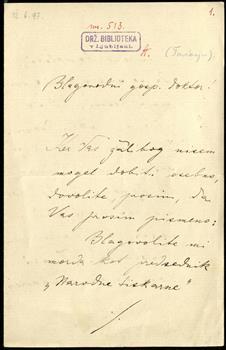 12. 6. 97
1.
ms. 513.
DRŽ. BIBLIOTEKA
v Ljubljani.
Blagorodni gosp. doktor!
Ker Vas žal bog nisem
mogel dobiti osebno,
dovolite prosim, da
Vas prosim pismeno:
Blagovolite mi
morda kot predsednik
„Narodne tiskarne"